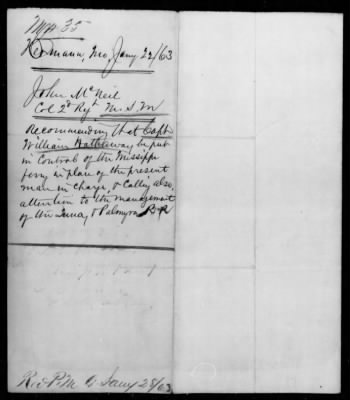 35
Hermann, Mo, Jany 22/63
John McNeil
Col 2d Regt M.S.M
Recommending that Capt
William Hathaway be put
in Control of the Mississippi
ferry in place of the present
man in charge, & Calling also,
attention to the management
of the Quincy & Palmyra R R
Rec P.M. G Jany 28/63